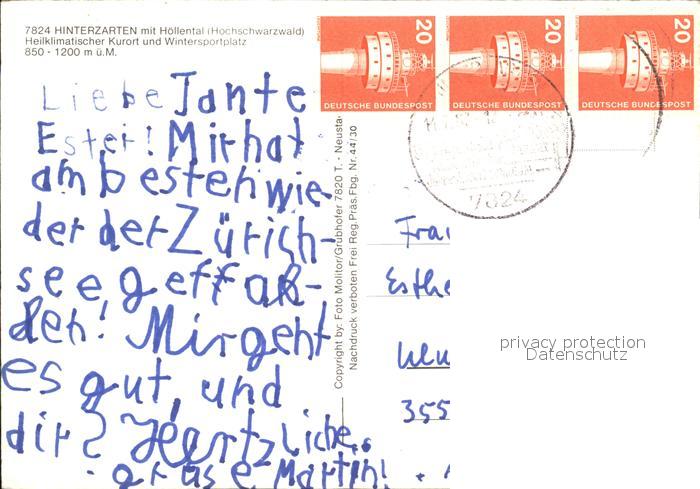 7824 HINTERZARTEN mit Höllental (Hochschwarzwald)
Heilklimatischer Kurort und Wintersportplatz
850 - 1200 m ü.M.
Liebe Tante
Ester! Mir hat
am besten wie-
der der Zürich-
see geffal-
len! Mir geht
es gut, und
dir? Heartzliche
grüse Martin!
Copyright by: Foto Molitor/Grubhofer 7820 T. - Neusta
Nachdruck verboten Frei Reg.Präs.Fbg. Nr.44/30
20
DEUTSCHE BUNDESPOST
20
DEUTSCHE BUNDESPOST
20
DEUTSCHE BUNDESPOST
7824
Frau
Esthe
355
privacy protection
Datenschutz